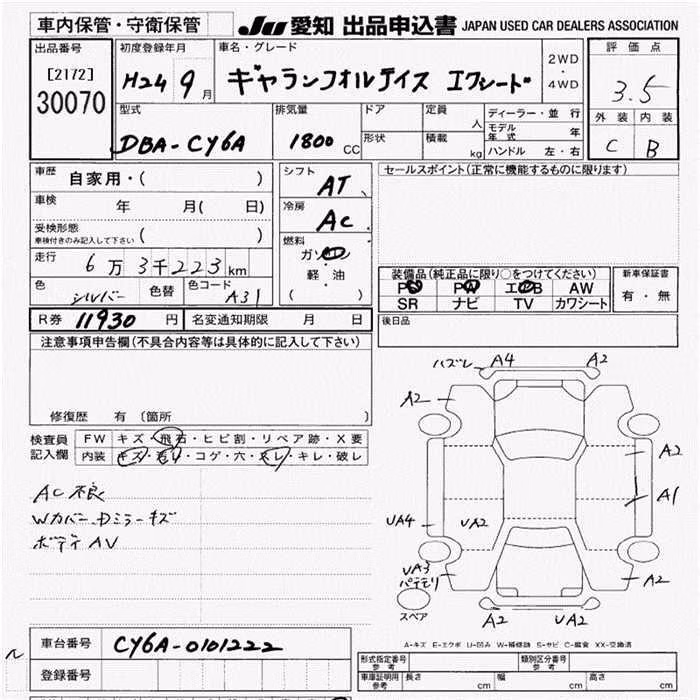 車内保管・守衛保管
JU 愛知 出品申込書 JAPAN USED CAR DEALERS ASSOCIATION
出品番号
[2172]
30070
初度登録年月
H24 9月
車名・グレード
ギャランフォルティス エクシード
2WD
・
4WD
評価点
3.5
外装 内装
C B
型式
DBA-CY6A
排気量
1800 CC
ドア
形状
定員
人
積載
kg
ディーラー・並行
モデル年式 年
ハンドル 左・右
車歴 自家用・( )
車検 年 月( 日)
受検形態
車検付きのみ記入して下さい ( )
走行 6万3千223km
色 シルバー 色替 色コード A31
シフト AT
冷房 AC
燃料
ガソリン
軽・油
( )
セールスポイント(正常に機能するものに限ります)
装備品(純正品に限り○をつけてください)
PS PW エアB AW
SR ナビ TV カワシート
新車保証書
有・無
R券 11930 円 名変通知期限 月 日
後日品
注意事項申告欄(不具合内容等は具体的に記入して下さい)
修復歴 有 (箇所
検査員記入欄
FW キズ・飛石・ヒビ割・リペア跡・X要
内装 キズ・汚レ・コゲ・穴・スレ・キレ・破レ
AC不良
Wカバー、Dミラーキズ
ボディAV
ハズレ A4 A2
A2
A2
A1
UA4 UA2
UA3
パテモリ
A2
スペア
A2 UA2
A-キズ E-エクボ U-凹み W-補修跡 S-サビ C-腐食 XX-交換済
車台番号 CY6A-0101222
登録番号
形式指定番号 参考
類別区分番号 参考
車庫証明用 参考 長さ cm 幅 cm 高さ cm